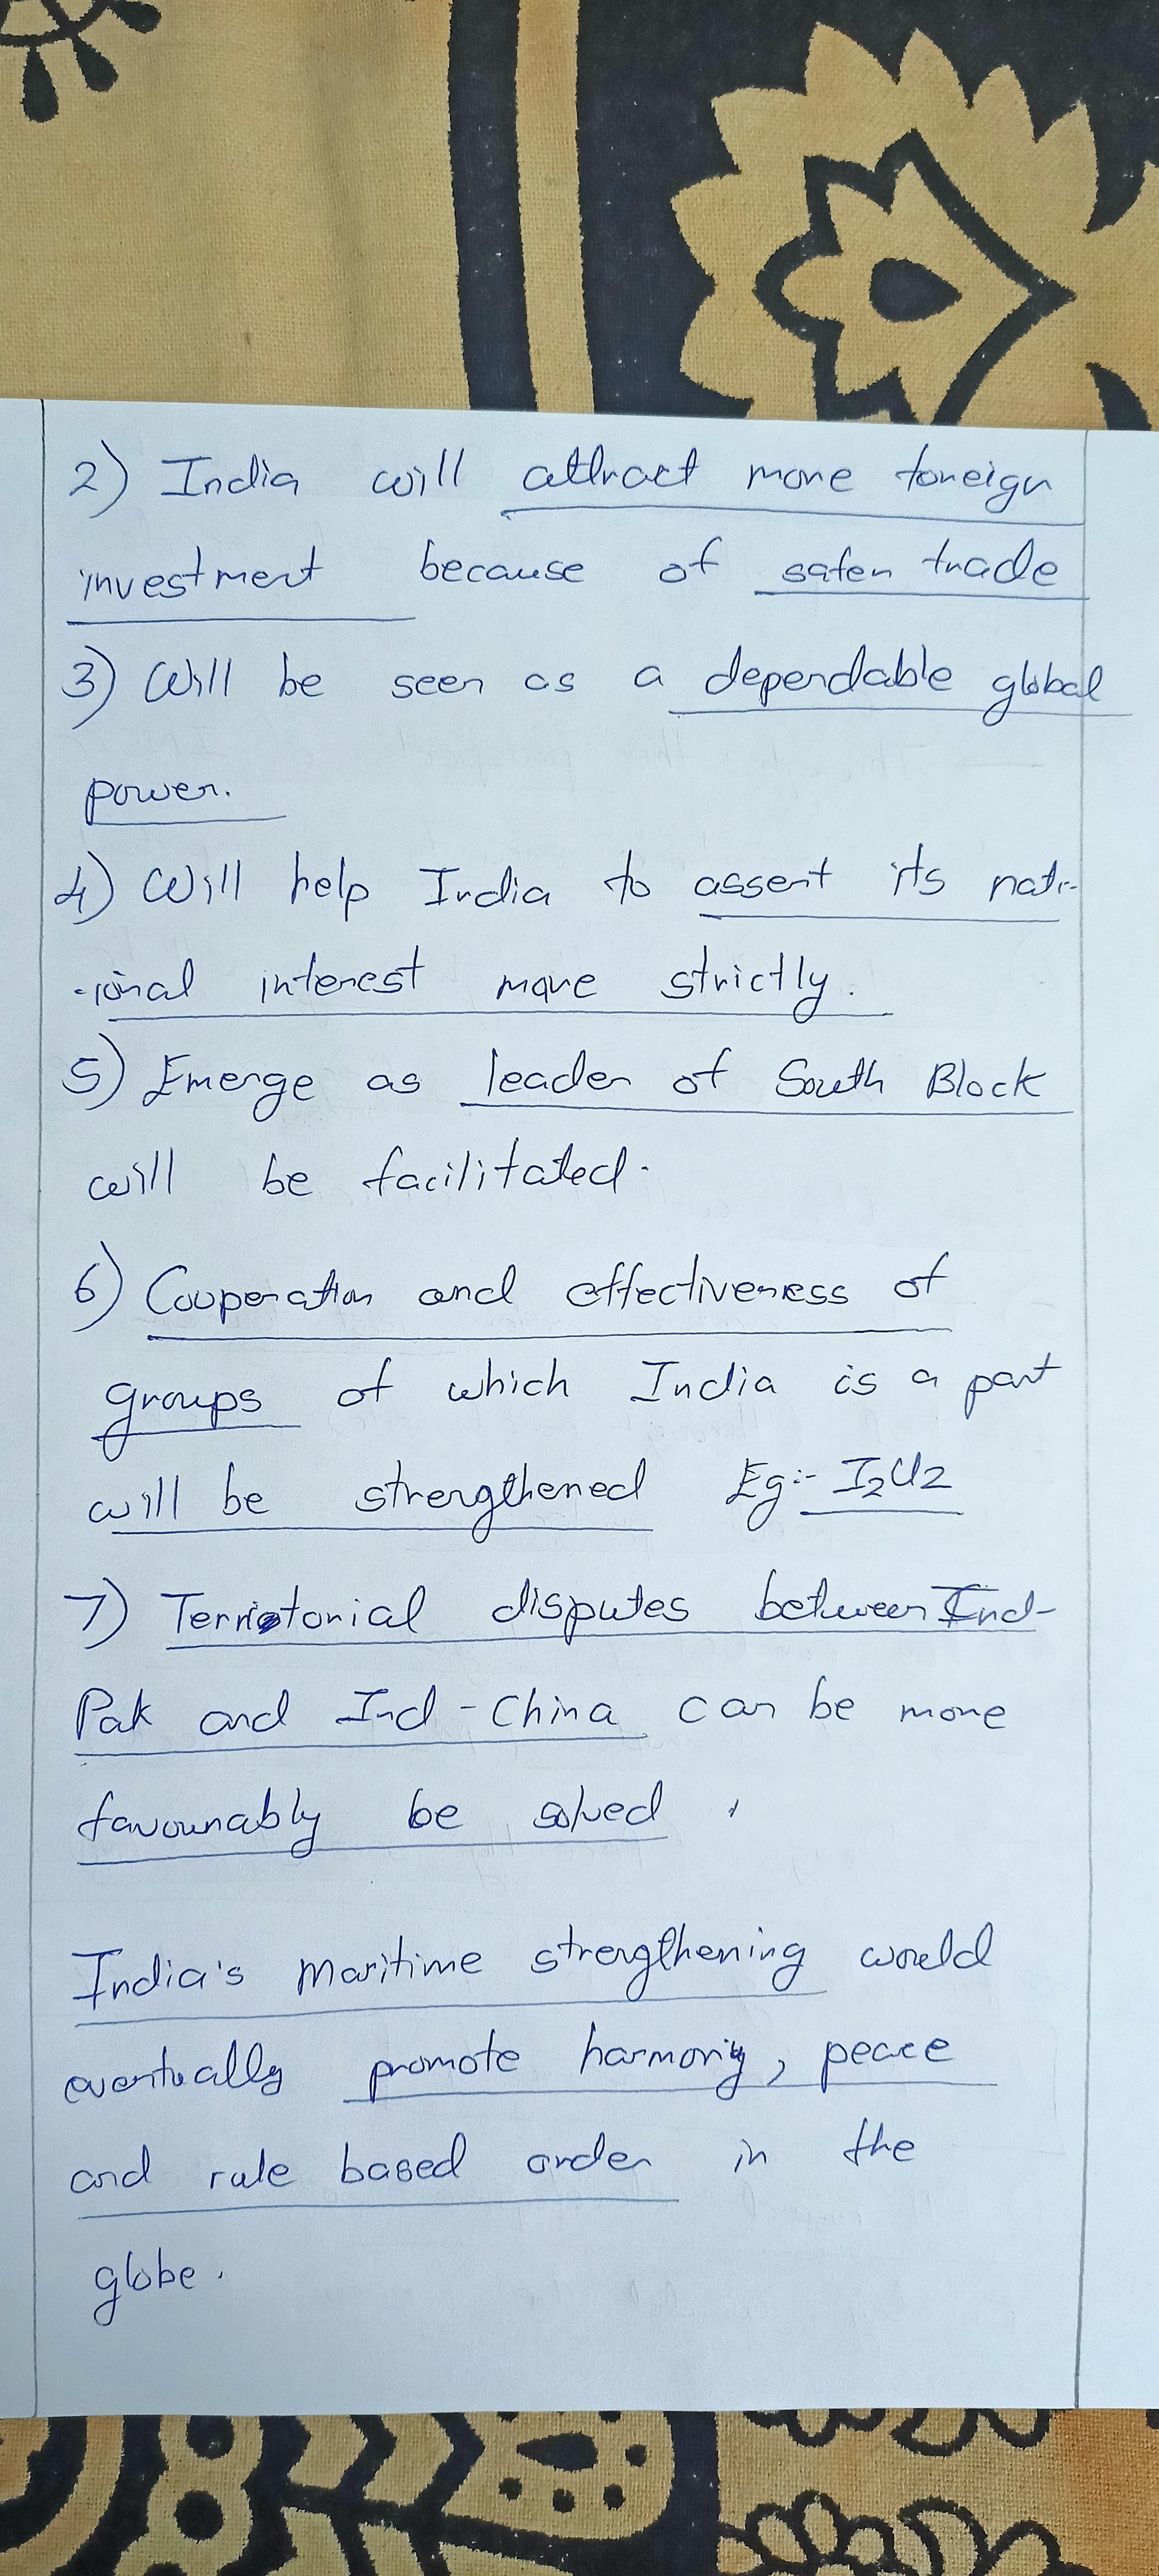 2) India will attract more foreign
investment because of safer trade
3) Will be seen as a dependable global
power.
4) Will help India to assert its nati-
-ional interest more strictly.
5) Emerge as leader of South Block
will be facilitated.
6) Cooperation and effectiveness of
groups of which India is a part
will be strengthened Eg:- I2U2
7) Territorial disputes between Ind-
Pak and Ind-China can be more
favourably be solved.
India's maritime strengthening would
eventually promote harmony, peace
and rule based order in the
globe.